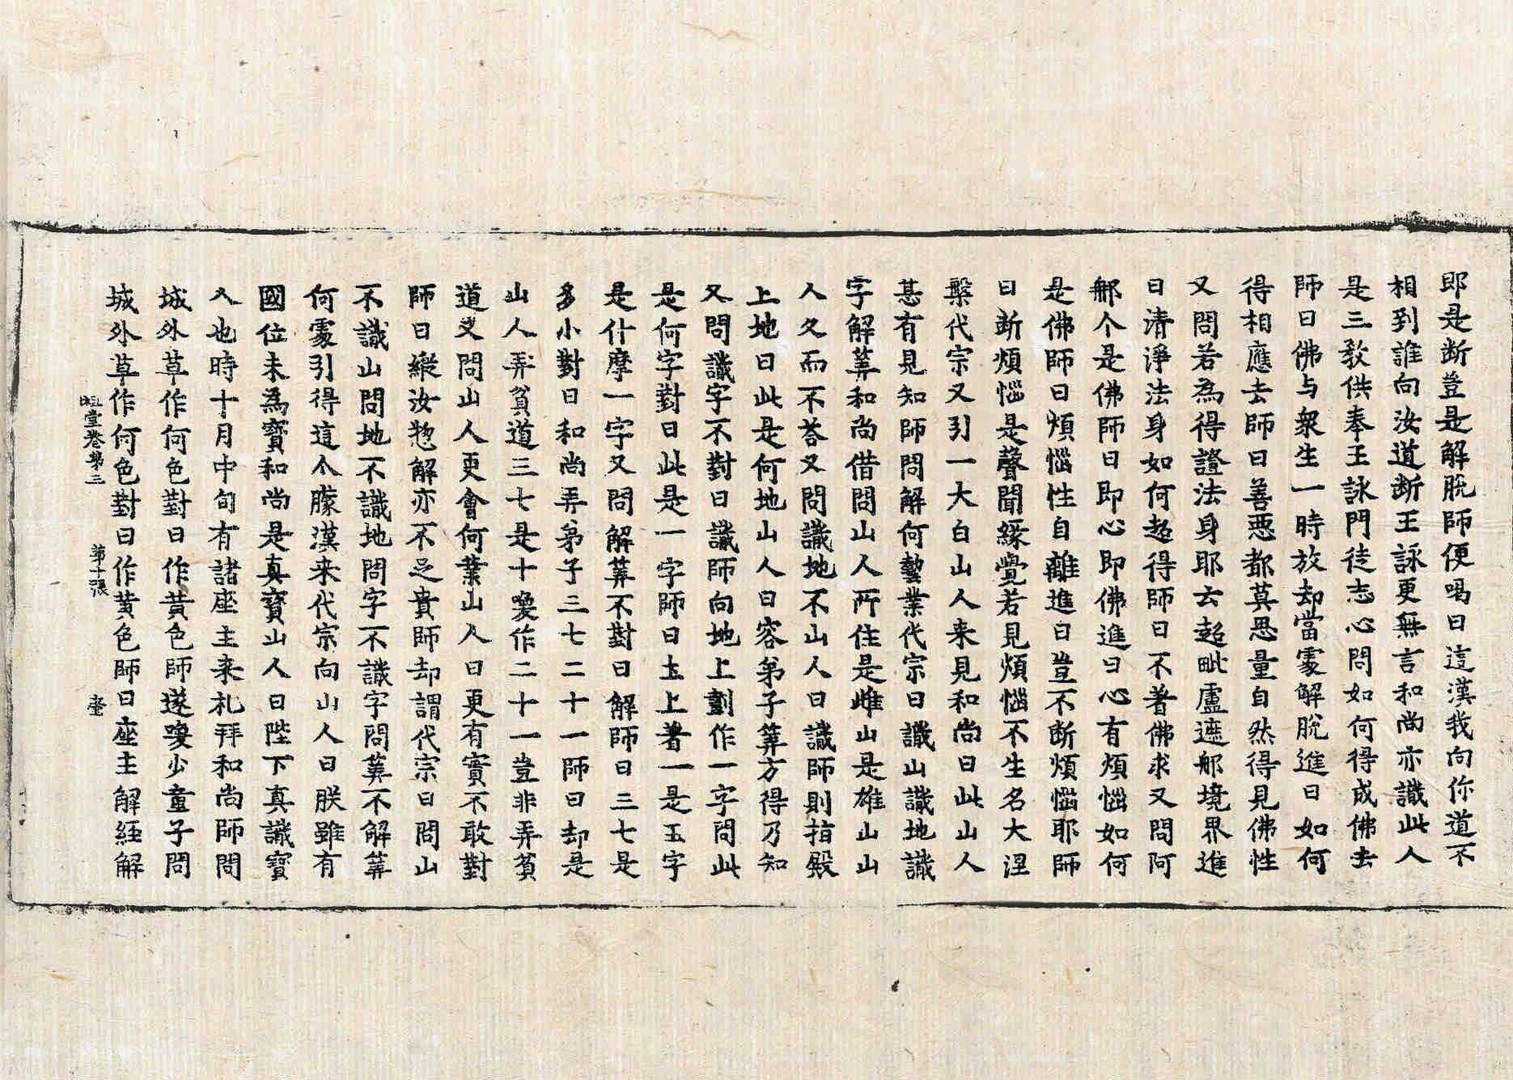 即是断豈是解脱師便喝曰這漢我向你道不
相到誰向汝道断王詠更無言和尚亦識此人
是三教供奉王詠門徒志心問如何得成佛去
師曰佛与衆生一時放却當處解脱進曰如何
得相應去師曰善惡都莫思量自然得見佛性
又問若為得證法身耶云超毗盧遮郍境界進
曰清淨法身如何超得師曰不著佛求又問阿
郍个是佛師曰即心即佛進曰心有煩惱如何
是佛師曰煩惱性自離進曰豈不断煩惱耶師
曰断煩惱是聲聞緣覺若見煩惱不生名大涅
槃代宗又引一大白山人来見和尚曰此山人
甚有見知師問解何藝業代宗曰識山識地識
字解筭和尚借問山人所住是雌山是雄山山
人久而不荅又問識地不山人曰識師則指殿
上地曰此是何地山人曰容弟子筭方得乃知
又問識字不對曰識師向地上劃作一字問此
是何字對曰此是一字師曰玉上著一是王字
是什摩一字又問解筭不對曰解師曰三七是
多小對曰和尚弄弟子三七二十一師曰却是
山人弄貧道三七是十喚作二十一豈非弄貧
道又問山人更會何業山人曰更有實不敢對
師曰縱汝惣解亦不足貴師却謂代宗曰問山
不識山問地不識地問字不識字問筭不解筭
何處引得這个朦漢来代宗向山人曰朕雖有
國位未為寶和尚是真寶山人曰陛下真識寶
人也時十月中旬有諸座主来礼拜和尚師問
城外草作何色對曰作黄色師遂喚少童子問
城外草作何色對曰作黄色師曰座主解經解
堂卷第三 第十張